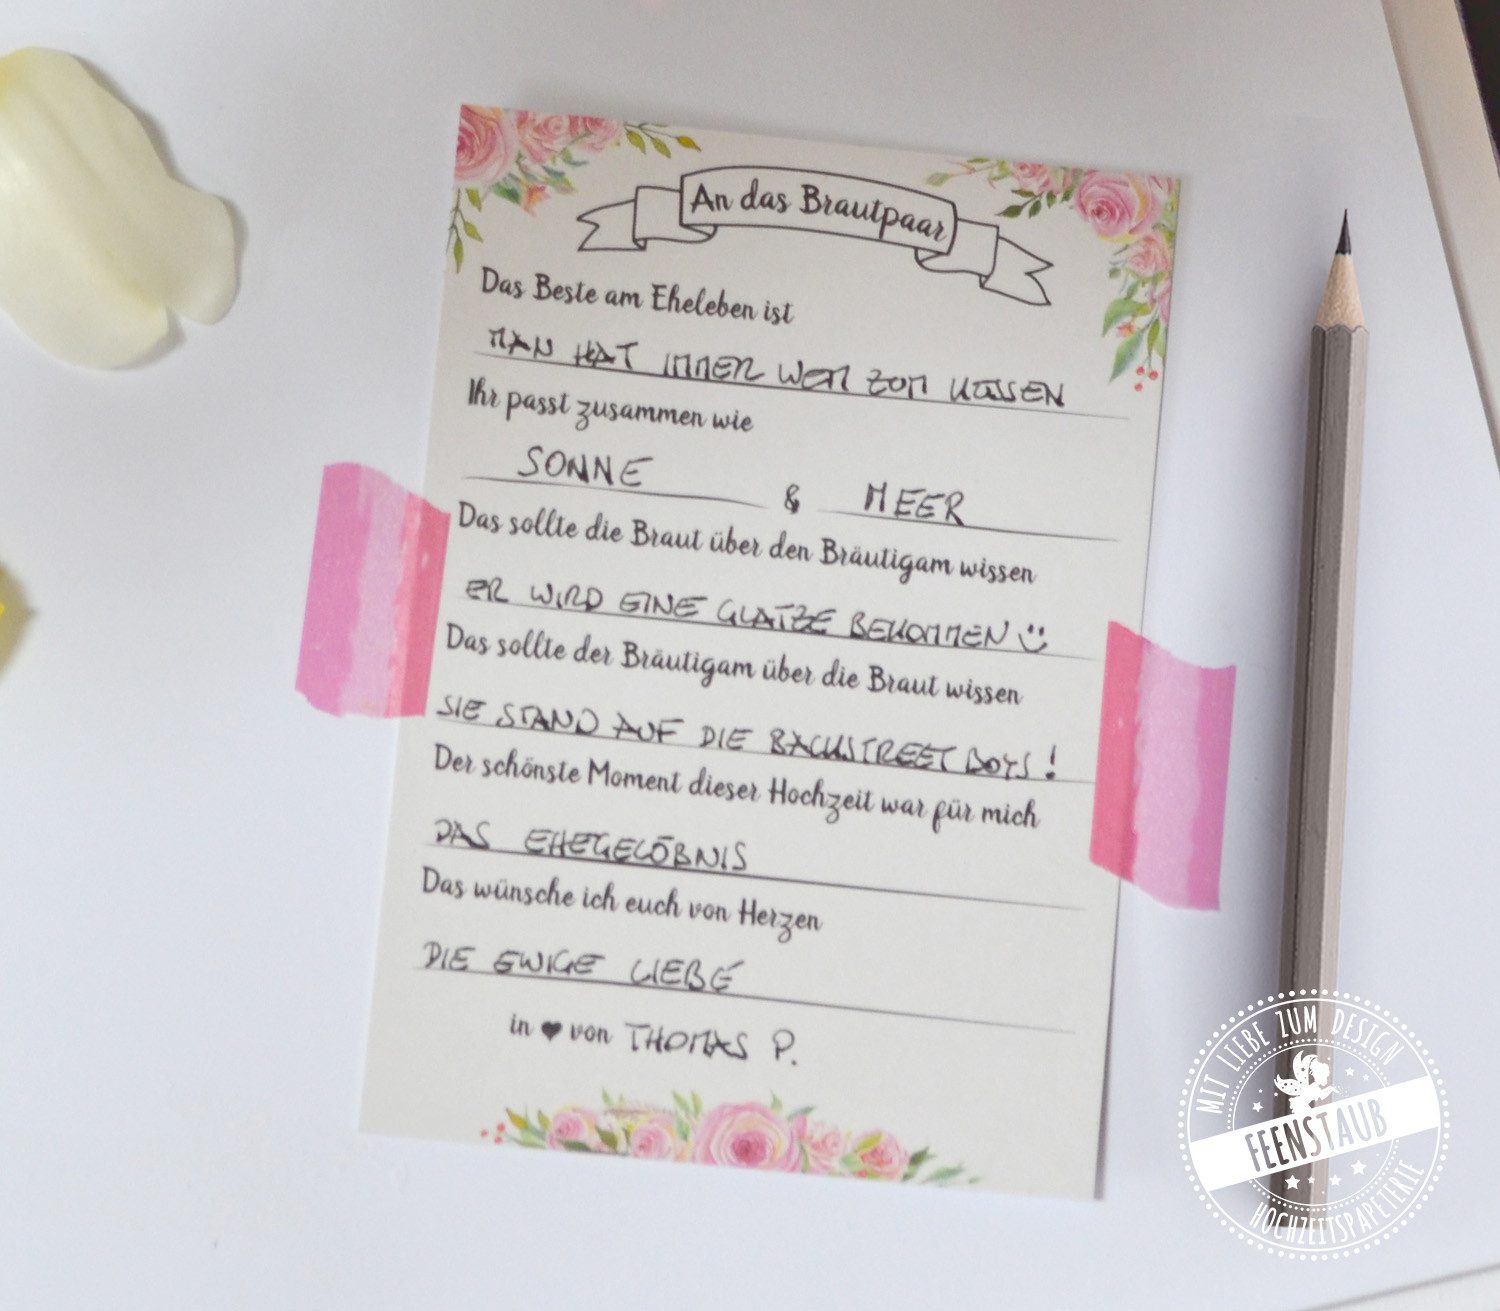 An das Brautpaar
Das Beste am Eheleben ist
MAN HAT IMMER WEN ZUM KÜSSEN
Ihr passt zusammen wie
SONNE & MEER
Das sollte die Braut über den Bräutigam wissen
ER WIRD EINE GLATZE BEKOMMEN
Das sollte der Bräutigam über die Braut wissen
SIE STAND AUF DIE BACKSTREET BOYS!
Der schönste Moment dieser Hochzeit war für mich
DAS EHEGELÖBNIS
Das wünsche ich euch von Herzen
DIE EWIGE LIEBE
in ♥ von THOMAS P.
MIT LIEBE ZUM DESIGN
FEENSTAUB
HOCHZEITSPAPETERIE